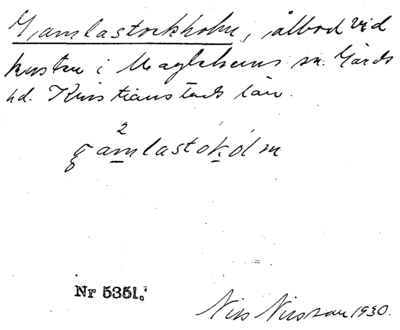 Gamlastockholm, ålbod vid
kusten i Maglehems sn. Gärds
hd. Kristianstads län.
2
gamlastókólm
Nr 5351.
Nils Nilsson 1930.